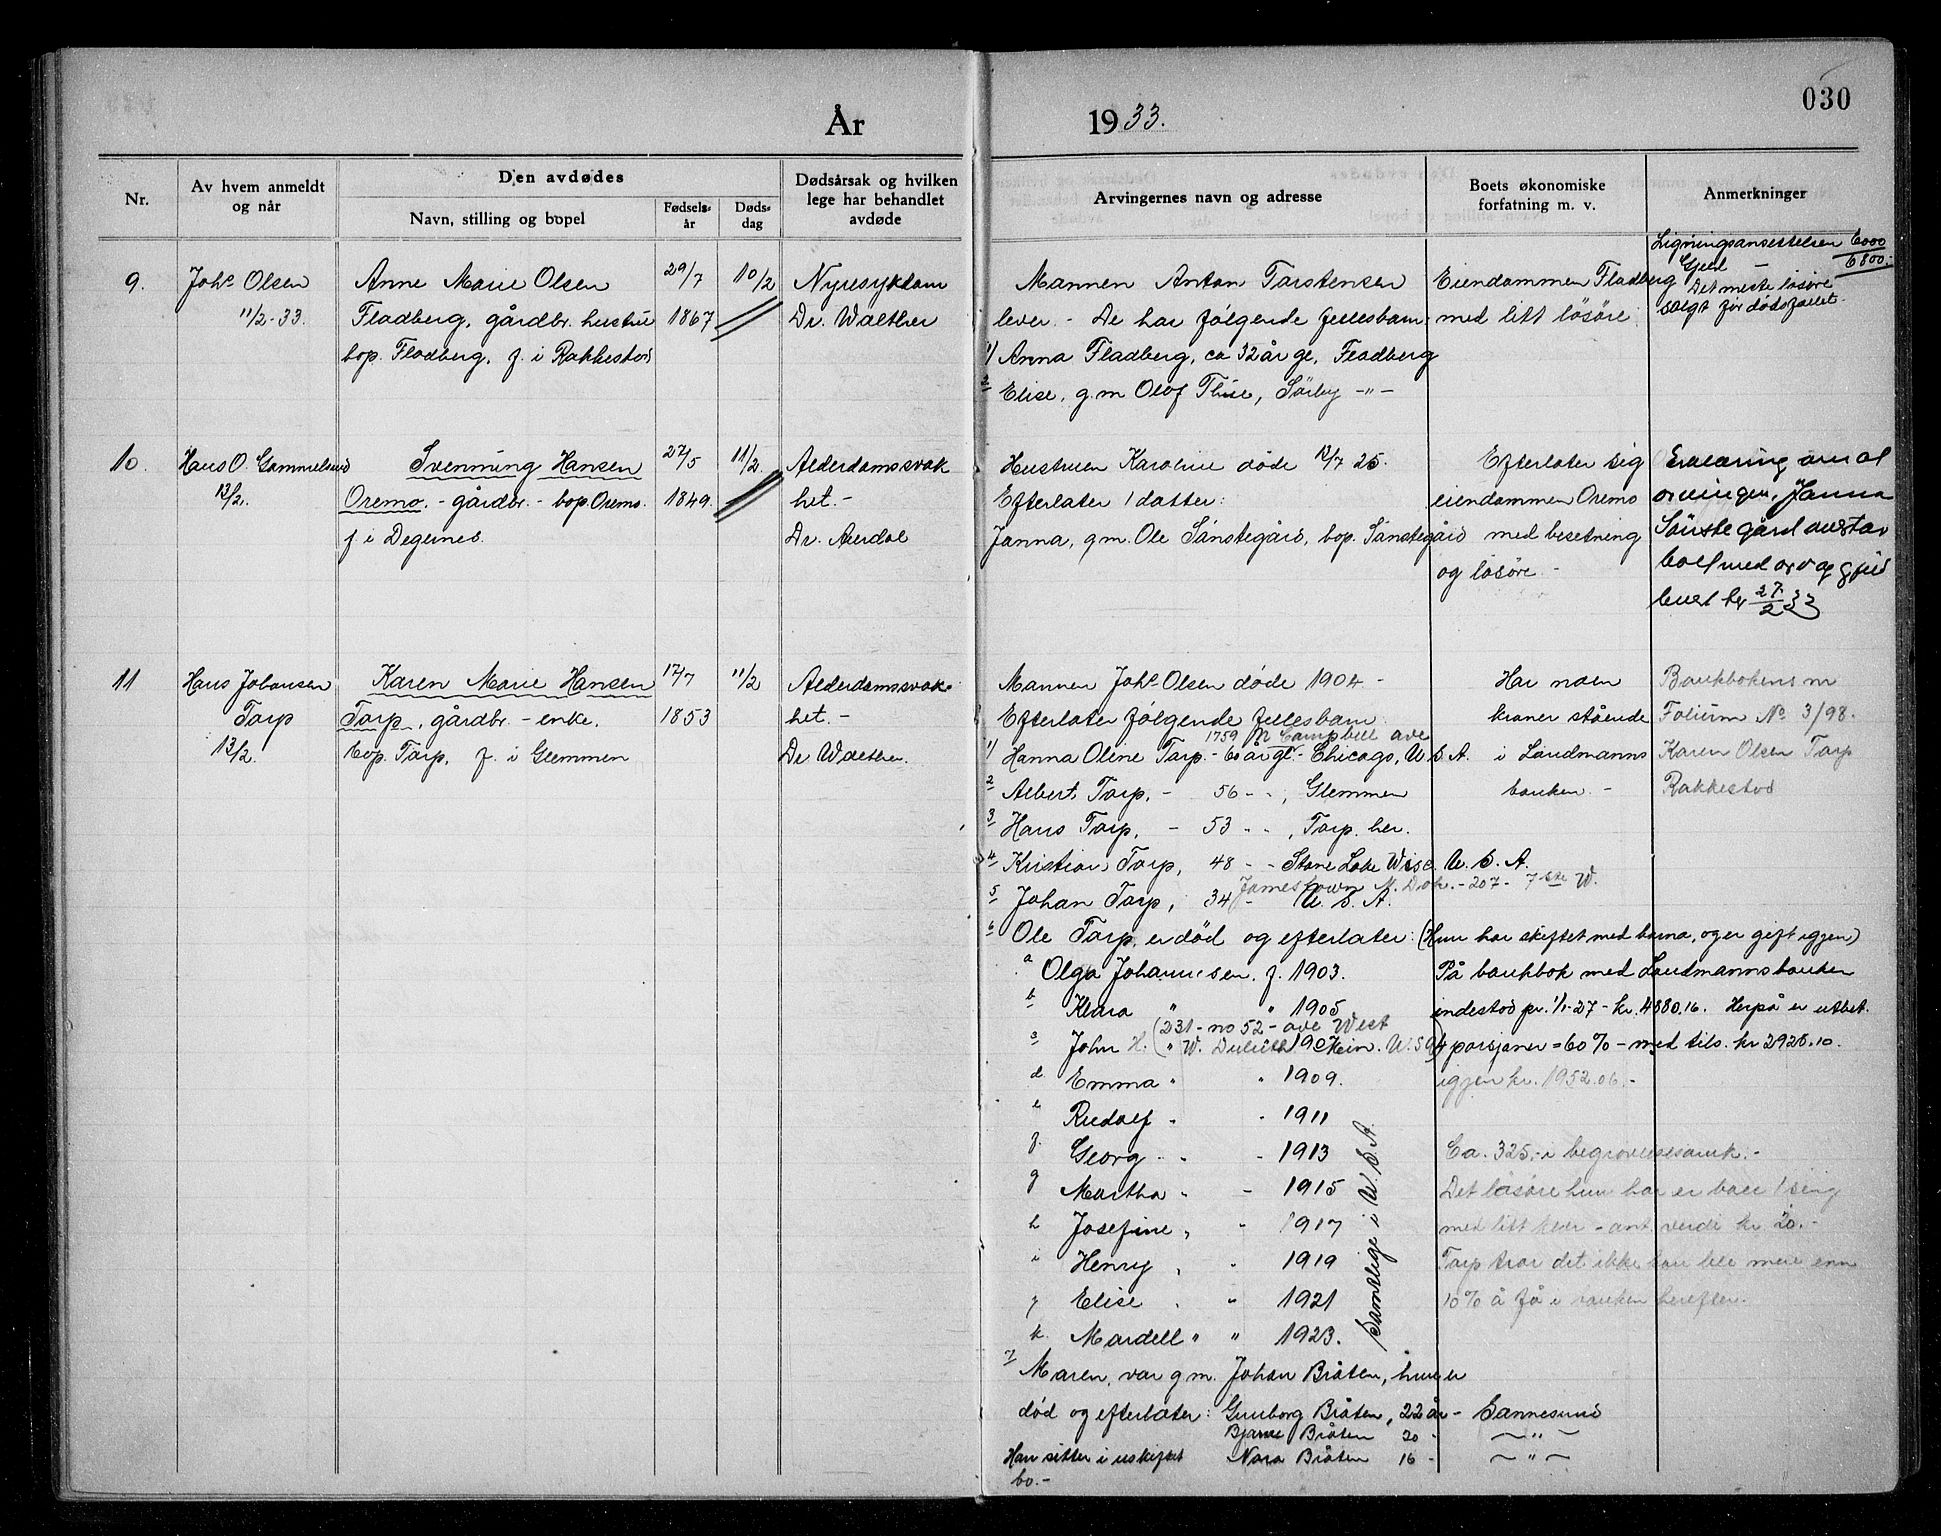 030
År 1933.
Nr.
Av hvem anmeldt og når
Den avdødes
Navn, stilling og bopel
Fødselsår
Dødsdag
Dødsårsak og hvilken lege har behandlet avdøde
Arvingernes navn og adresse
Boets økonomiske forfatning m. v.
Anmerkninger
9.
Johs Olsen
11/2-33.
Anne Marie Olsen
Fladberg, gårdbr. hustru
bop. Fladberg, f. i Rakkestad
29/7
1867
10/2
Nyresykdom
Dr. Walther
Mannen Anton Torstensen
lever. - De har følgende fellesbarn
1) Anna Fladberg, ca 32 år gl, Fladberg
2 Elise, g.m Olof Thise, Sørby -"-
Eiendommen Fladberg
med litt løsøre.
Ligningsansettelsen 6000
Gjeld - 6800.-
Det meste løsøre
solgt før dødsfallet.
10.
Hans O. Gammelsrud
13/2.
Svenning Hansen
Oremo. - gårdbr. - bop. Oremo.
f i Degernes.
27/5
1849.
11/2
Alderdomssvak
het. -
Dr. Aurdal
Hustruen Karoline døde 12/7 25.
Efterlater 1 datter:
Janna, g.m. Ole Sønstegård, bop. Sønstegård
Efterlater sig
eiendommen Oremo
med besetning
og løsøre. -
Erklæring om at
arvingen, Janna
Sønstegård overtar
boet med arv og gjeld
27/2 33
11
Hans Johansen
Torp
13/2.
Karen Marie Hansen
Torp, gårdbr. - enke.
bop. Torp, f. i Glemmen
17/7
1853
11/2
Alderdomssvak-
het. -
Dr Walther.
Mannen Johs Olsen døde 1904. -
Efterlater følgende fellesbarn
1759 N Campbell ave
1) Hanna Oline Torp - år gl. - Chicago, U. S. A.
2 Albert Torp, - 56 - - , Glemmen
3 Hans Torp, - 53 - - , Torp her.
4 Kristian Torp, 48 - - Stone Lake Wisc. U. S. A.
Jamestown N. Dak. - 207 - 7 ste W.
5 Johan Torp, 34 - U. S. A.
6 Ole Torp, er død og efterlater: (Hun har skiftet med barna, og er gift igjen)
a Olga Johannesen, f. 1903.
b Klara " " 1905
231 - no 52 - ave West
c John H. W. Duluth Min. U.S.A
d Emma " " 1909.
e Rudolf " - 1911
f. Georg - - - 1913
g Martha - - 1915
h Josefine, - 1917
i Henry , - 1919
j Elise . " 1921
k. Mardell " " 1923.
Samtlige i U. S. A.
7 Maren, var g.m. Johan Bråten, hun er
død og efterlater: Gunborg Bråten, 22 år - Sannesund
Bjarne Bråten 20 - -"-
Han sitter i uskiftet Nora Bråten 16 - -"-
bo. -
Har noen
kroner stående
i Landmanns
banken. -
Bankbokens nr
Folium No 3/98.
Karen Olsen Torp
Rakkestad
På bankbok med Landmannsbanken
indestod pr. 1/1-27 - kr. 4880.16. Herpå er utbet.
4 porsjoner = 60% - med tils. kr 2928.10.
igjen kr. 1952.06. -
Ca. 325.- i begravelsesomk. -
Det løsøre hun har er bare 1 seng
med litt klær - ant. verdi kr 20. -
Torp tror det ikke kan bli mere enn
10% å få i banken herefter.